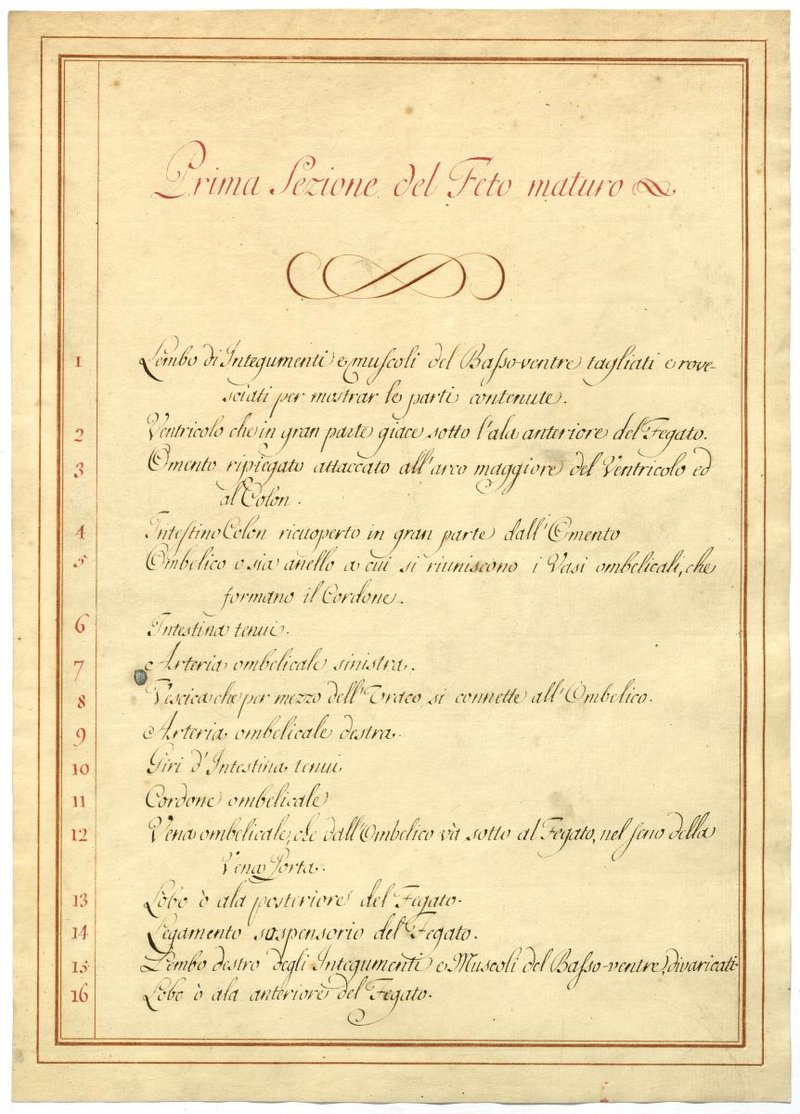 Prima Sezione del Feto maturo
1 Lembo di Integumenti e muscoli del Basso-ventre tagliati e rove-
sciati per mostrar le parti contenute.
2 Ventricolo che in gran parte giace sotto l'ala anteriore del Fegato.
3 Omento ripiegato attaccato all'arco maggiore del Ventricolo ed
al Colon.
4 Intestino Colon ricuoperto in gran parte dall'Omento
5 Ombelico o sia anello a cui si riuniscono i Vasi ombelicali, che
formano il Cordone.
6 Intestina tenui.
7 Arteria ombelicale sinistra.
8 Vescica che per mezzo dell'Uraco si connette all'Ombelico.
9 Arteria ombelicale destra.
10 Giri d'Intestina tenui
11 Cordone ombelicale
12 Vena ombelicale, che dall'Ombelico và sotto al Fegato, nel seno della
Vena Porta.
13 Lobo ò ala posteriore del Fegato.
14 Legamento sospensorio del Fegato.
15 Lembo destro degli Integumenti e Muscoli del Basso-ventre divaricati.
16 Lobo ò ala anteriore del Fegato.